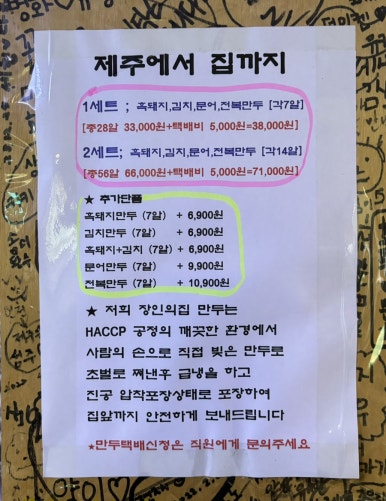 제주에서 집까지
1세트 ; 흑돼지,김치,문어,전복만두 [각7알]
[총28알 33,000원+택배비 5,000원=38,000원]
2세트; 흑돼지,김치,문어,전복만두 [각14알]
[총56알 66,000원+택배비 5,000원=71,000원]
★ 추가단품
흑돼지만두 (7알) + 6,900원
김치만두 (7알) + 6,900원
흑돼지+김치 (7알) + 6,900원
문어만두 (7알) + 9,900원
전복만두 (7알) + 10,900원
★ 저희 장인의집 만두는
HACCP 공정의 깨끗한 환경에서
사람의 손으로 직접 빚은 만두로
초벌로 쪄낸후 급냉을 하고
진공 압착포장상태로 포장하여
집앞까지 안전하게 보내드립니다
★만두택배신청은 직원에게 문의주세요